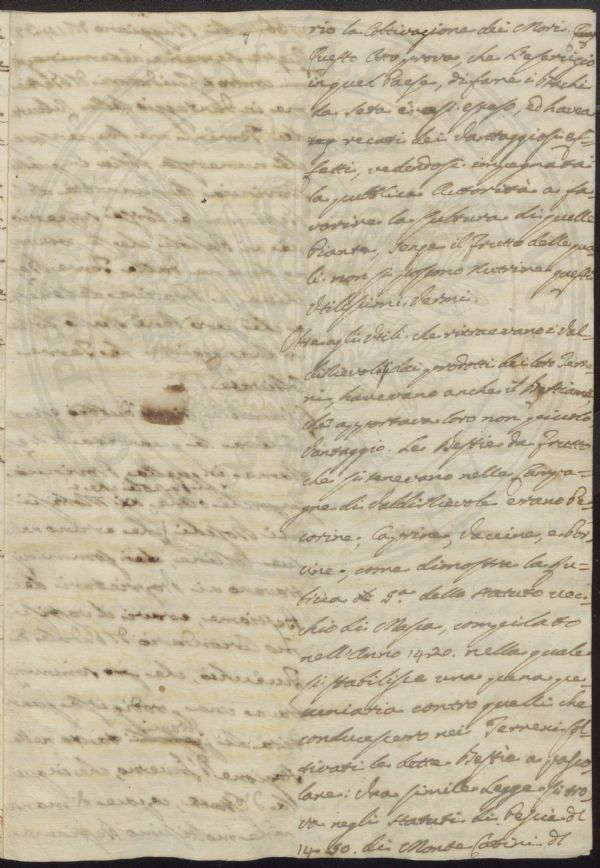 rio la Coltivazione dei Mori.
Questo Atto prova, che l'esercizio
in quel Paese, di fare i Bachi
da Seta erasi esteso, ed havea
recati dei Vantaggiosi ef-
fetti, vedendosi impegnata
la pubblica Autorità a fa-
vorire la Cultura di quelle
Piante, senza il frutto delle qua-
li non si possono nutrire questi
Utilissimi Vermi.
Oltre agli Utili che ritraevano i Val-
dinievoli dai prodotti dei loro Terre-
ni, havevano anche il Bestiame
che apportava loro non piccolo
Vantaggio. Le Bestie da frutto
che si tenevano nelle Campa-
gne di Valdinievole erano Pe-
corine, Caprine, Vaccine, e Por-
cine, come dimostra la Ru-
brica 2.a dello Statuto vec-
chio di Massa, compilato
nell'Anno 1420. nella quale
si stabilisce una pena pe-
cuniaria contro quelli che
conducessero nei Terreni col-
tivati le dette Bestie a pasco-
lare: Una simile Legge si tro-
va negli Statuti di Pescia dl
14 50. di Monte Catini dl